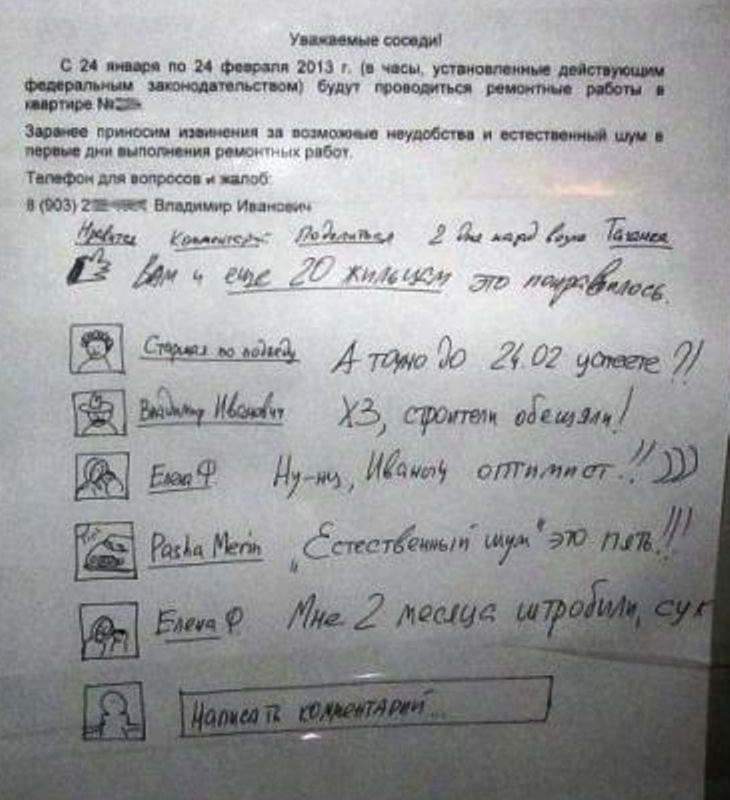 Уважаемые соседи!
С 24 января по 24 февраля 2013 г. (в часы, установленные действующим
федеральным законодательством) будут проводиться ремонтные работы в
квартире №
Заранее приносим извинения за возможные неудобства и естественный шум в
первые дни выполнения ремонтных работ.
Телефон для вопросов и жалоб:
8 (903) 2 Владимир Иванович
Нравится Комментарий Поделиться 2 дня назад возле Таганка
Вам и еще 20 жильцам это понравилось.
Старшая по подъезду А точно до 24.02 успеете?!
Владимир Иванович ХЗ, строители обещали!
Елена Ф Ну-ну, Иваныч оптимист!!)))
Pasha Merin "Естественный шум" это пять!!!
Елена Ф. Мне 2 месяца штробили, сук
Написать комментарий...